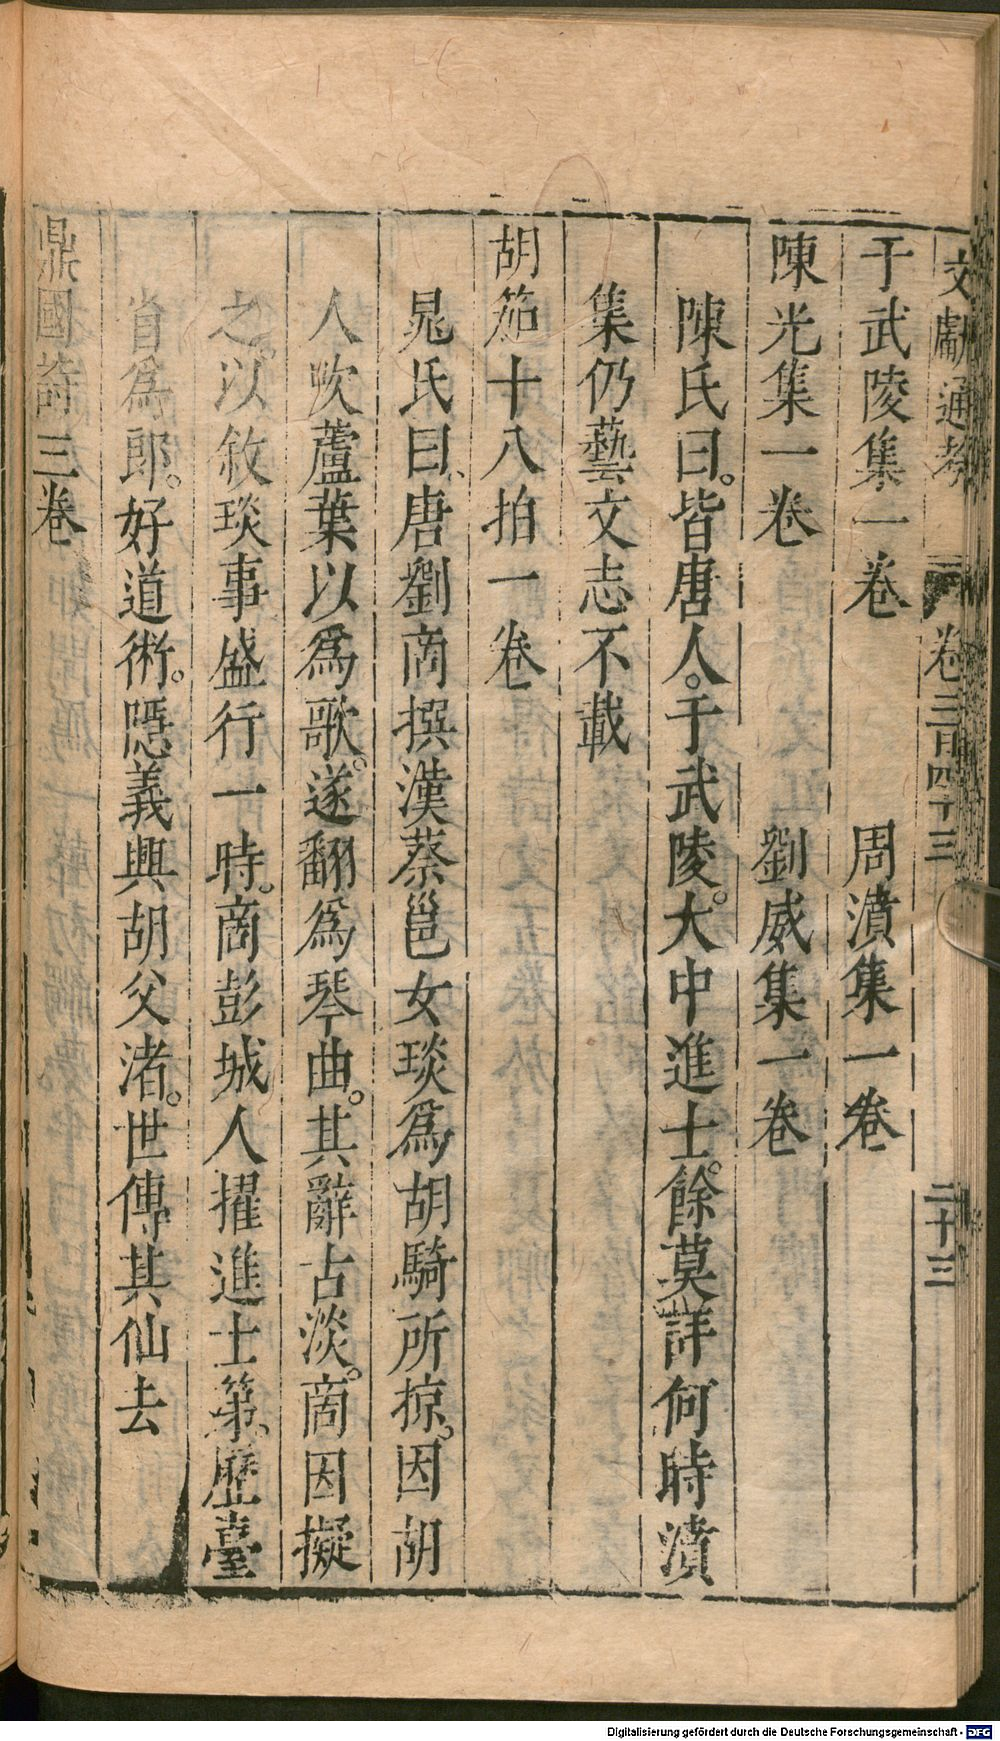 文獻通考 卷三百四十三 二十三
于武陵集一卷 周濆集一卷
陳光集一卷 劉威集一卷
陳氏曰。皆唐人。于武陵。大中進士。餘莫詳何時濆
集仍藝文志不載
胡笳十八拍一卷
晁氏曰、唐劉商撰漢蔡邕女琰爲胡騎所掠。因胡
人吹蘆葉以爲歌。遂翻爲琴曲。其辭古淡。商因擬
之。以敘琰事盛行一時。商彭城人擢進士第。歷臺
省爲郎。好道術。隱義興胡父渚。世傳其仙去
鼎國詩三卷
Digitalisierung gefördert durch die Deutsche Forschungsgemeinschaft - DFG